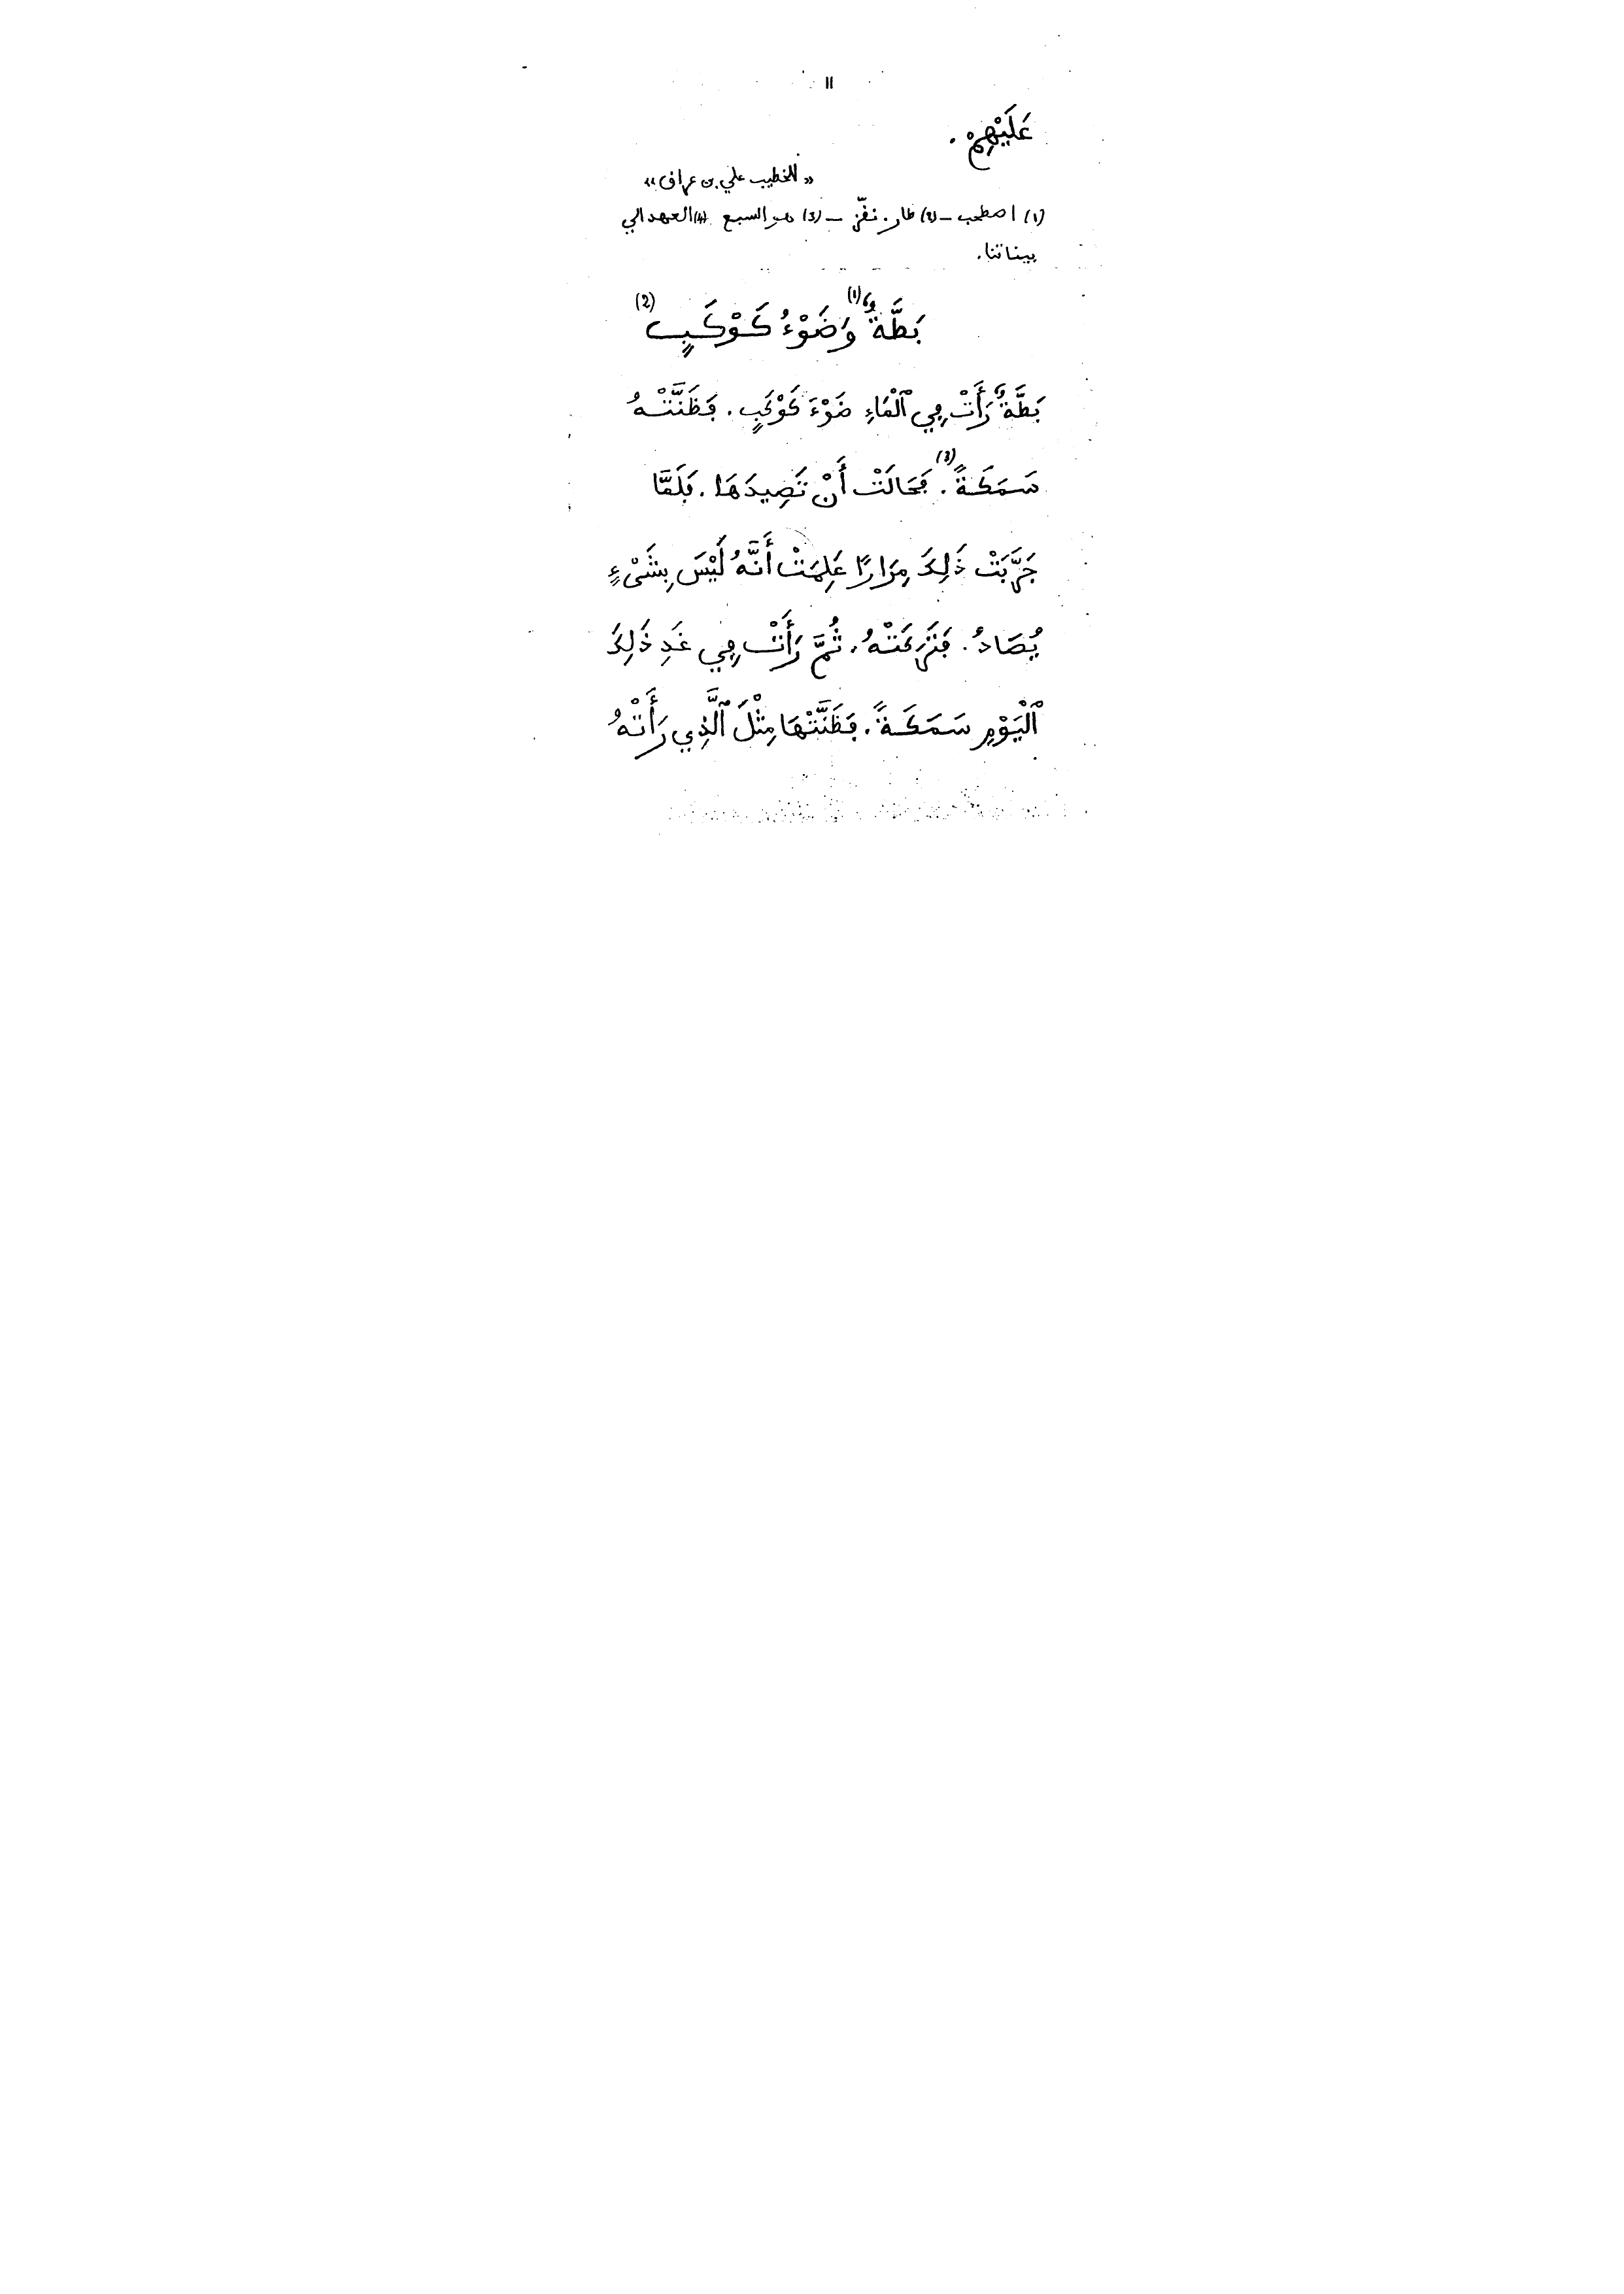 11
عَلَيْهِمْ .
« للخطيب علي بن عراف »
(1) اصطحب - (2) طار. نفّز - (3) هو السبع (4) العهد الي
بيناتنا.
بَطَّةٌ (1) وَضَوْءُ كَوْكَبٍ (2)
بَطَّةٌ رَأَتْ فِي ٱلْمَاءِ ضَوْءَ كَوْكَبٍ . فَظَنَّتْهُ
سَمَكَةً (3) . فَحَالَتْ أَنْ تَصِيدَهَا . فَلَمَّا
جَرَّبَتْ ذَلِكَ مِرَارًا عَلِمَتْ أَنَّهُ لَيْسَ بِشَىْءٍ
يُصَادُ . فَتَرَكَتْهُ . ثُمَّ رَأَتْ فِي غَدِ ذَلِكَ
ٱلْيَوْمِ سَمَكَةً . فَظَنَّتْهَا مِثْلَ ٱلَّذِي رَأَتْهُ